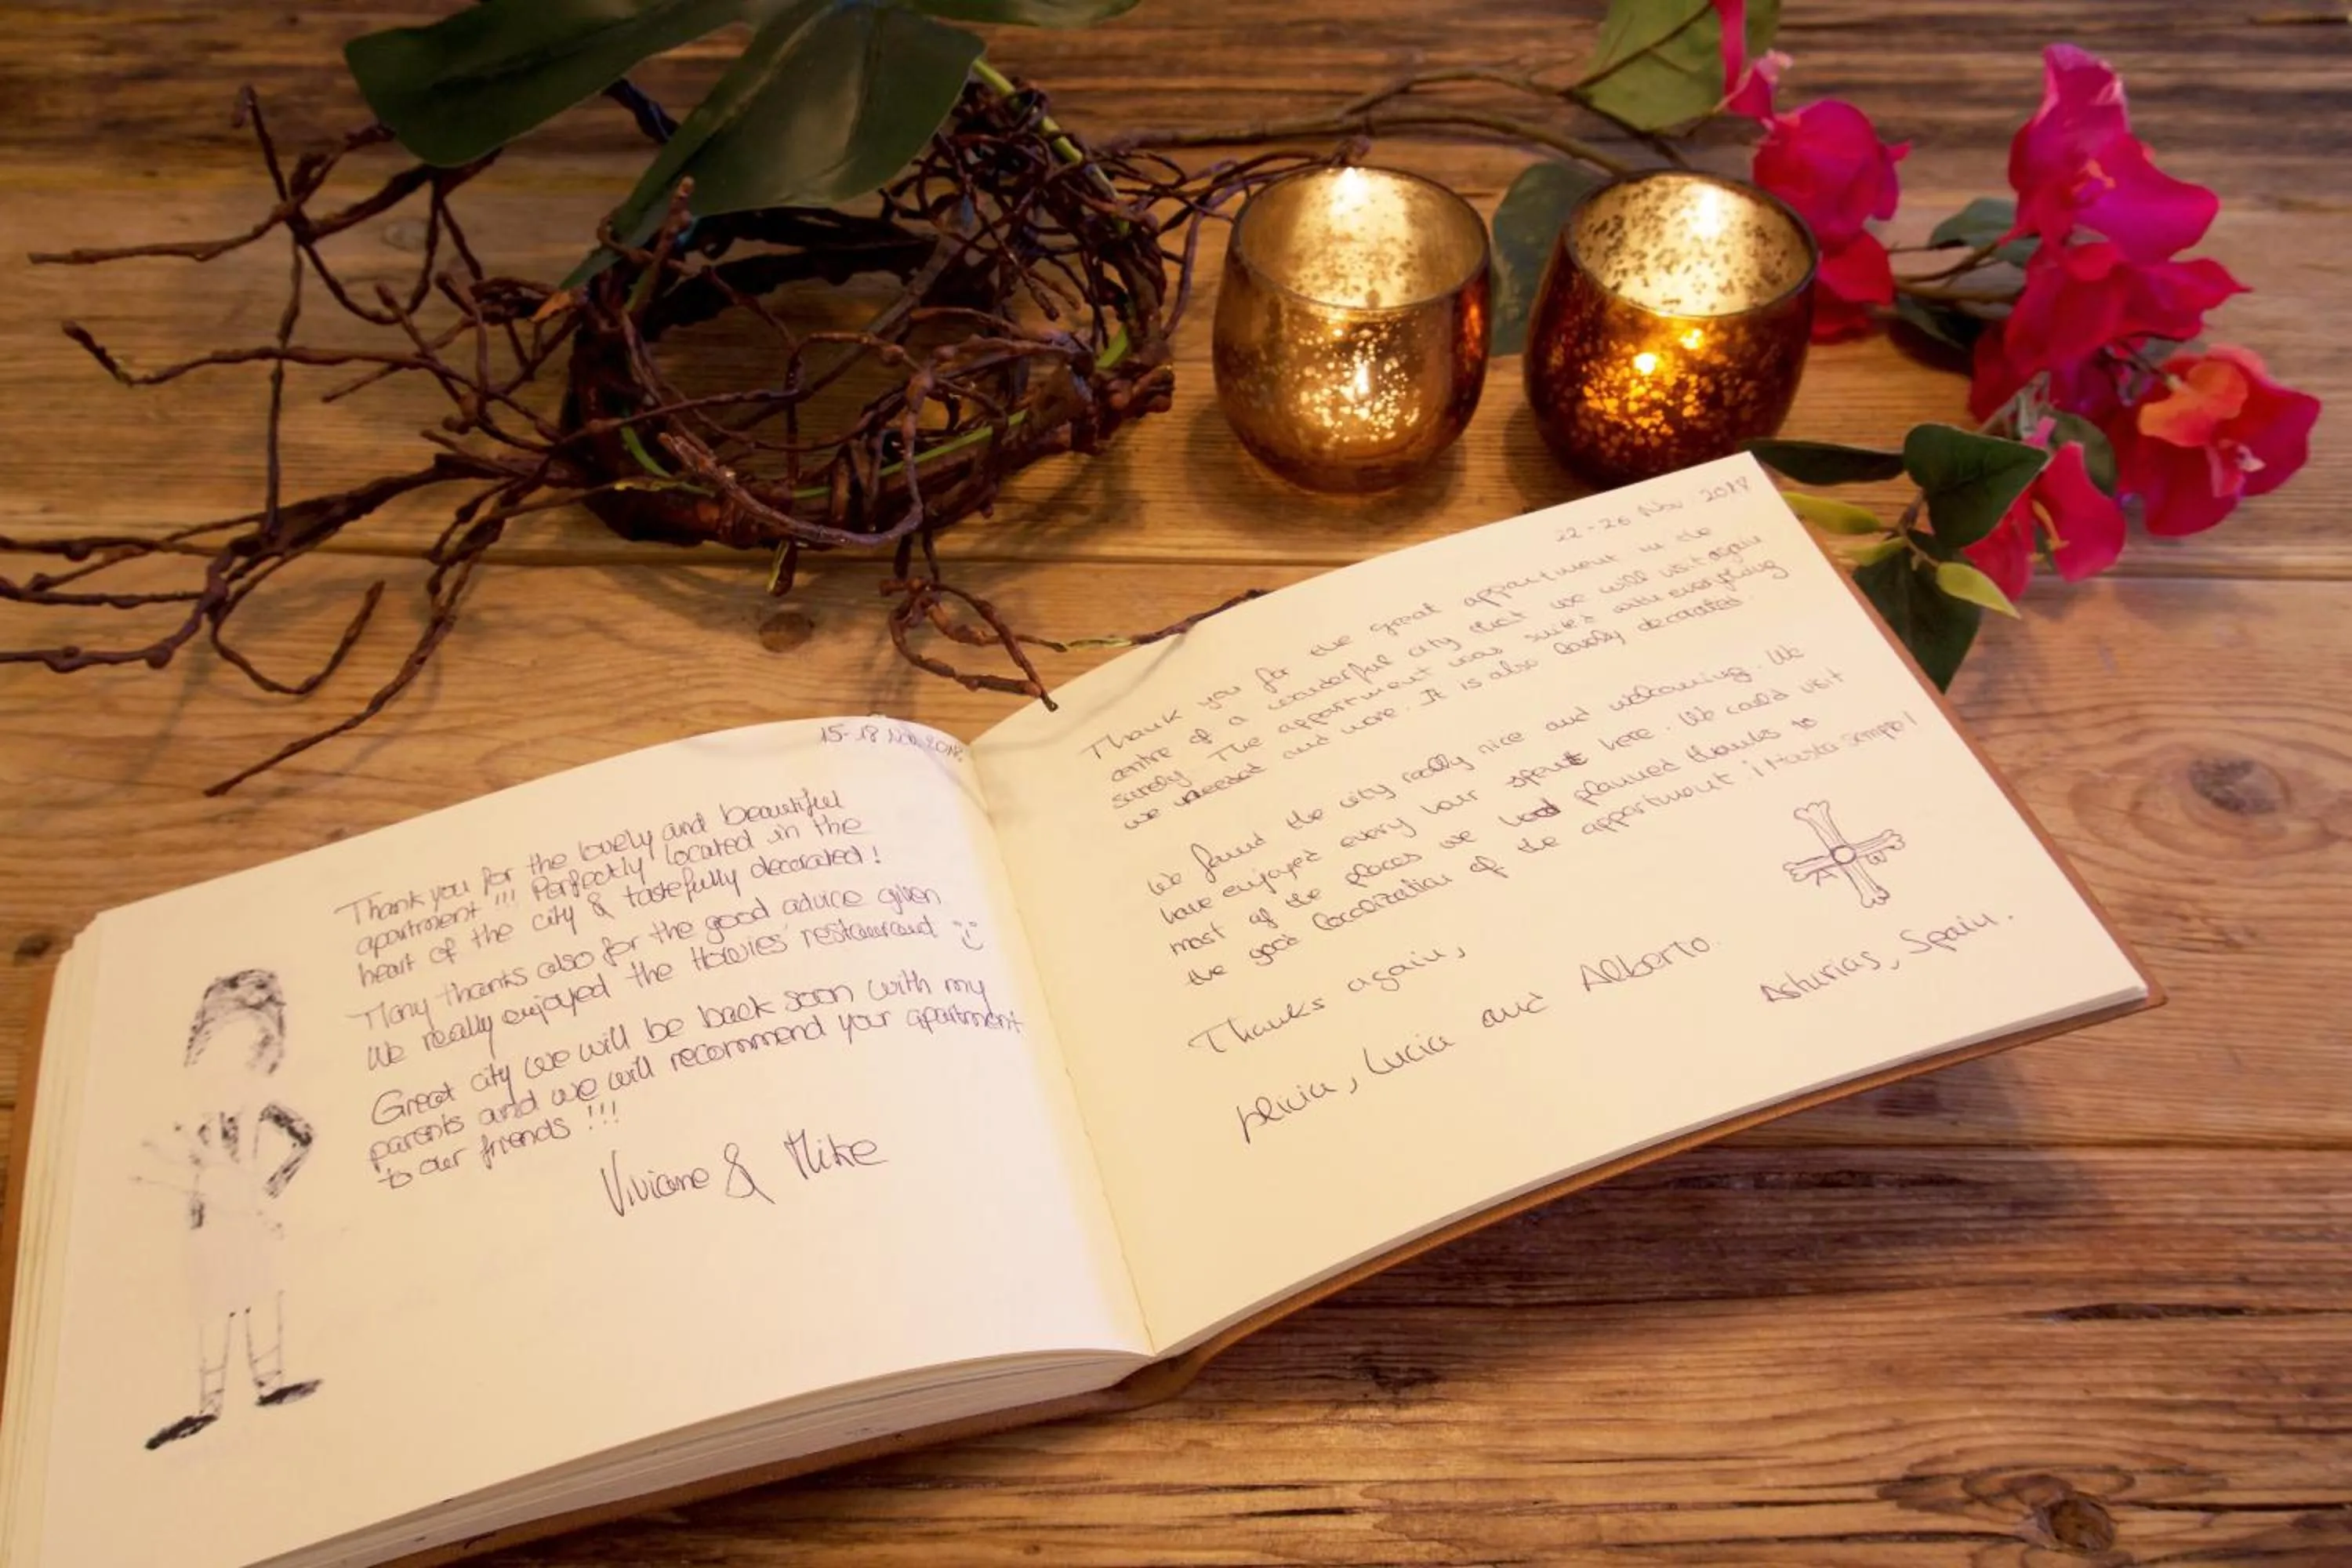 15-18 Nov 2018.
Thank you for the lovely and beautiful
apartment!!! Perfectly located in the
heart of the city & tastefully decorated!
Many thanks also for the good advice given
We really enjoyed the Howies' restaurant :)
Great city we will be back soon with my
parents and we will recommend your apartment
to our friends!!!
Viviane & Mike
22-26 Nov 2018
Thank you for the great appartment in the
centre of a wonderful city that we will visit again
surely. The appartment was suited with everything
we needed and more. It is also lovely decorated.
We found the city really nice and welcoming. We
have enjoyed every hour spent here. We could visit
most of the places we had planned thanks to
the good localization of the appartment ¡Hasta siempre!
Thanks again,
Alicia, Lucia and Alberto.
Asturias, Spain.